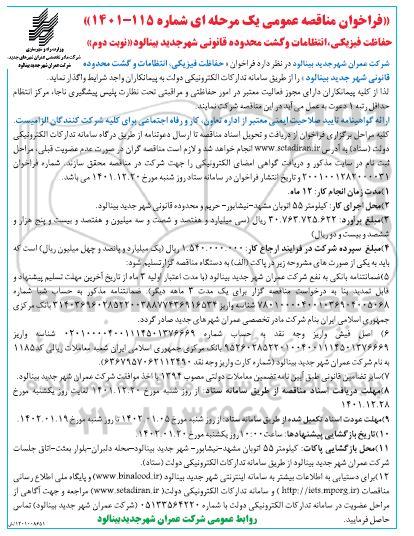 «فراخوان مناقصه عمومی یک مرحله ای شماره ۱۱۵-۱۴۰۱»
حفاظت فیزیکی، انتظامات وگشت محدوده قانونی شهرجدید بینالود«نوبت دوم»
وزارت راه و شهرسازی
شرکت عمران شهرجدید بینالود
شرکت عمران شهرجدید بینالود در نظر دارد فراخوان « حفاظت فیزیکی، انتظامات و گشت محدوده
قانونی شهر جدید بینالود » را از طریق سامانه تدارکات الکترونیکی دولت به پیمانکاران واجد شرایط واگذار نماید.
لذا از کلیه پیمانکاران دارای مجوز فعالیت معتبر در امور حفاظتی و مراقبتی تحت نظارت پلیس پیشگیری ناجا، مرکز انتظام
حداقل رتبه ۱ دعوت به عمل می آید در این مناقصه شرکت نمایند.
ارائه گواهینامه تایید صلاحیت ایمنی معتبر از اداره تعاون، کار و رفاه اجتماعی برای کلیه شرکت کنندگان الزامیست.
کلیه مراحل برگزاری فراخوان از دریافت و تحویل اسناد مناقصه تا ارسال دعوتنامه از طریق درگاه سامانه تدارکات الکترونیکی
دولت (ستاد) به آدرس www.setadiran.ir انجام خواهد شد و لازم است مناقصه گران در صورت عدم عضویت قبلی، مراحل
ثبت نام در سایت مذکور و دریافت گواهی امضای الکترونیکی را جهت شرکت در مناقصه محقق سازند. شماره فراخوان
و تاریخ انتشار فراخوان در سامانه ستاد روز شنبه مورخ ۱۴۰۱.۱۲.۲۰ می باشد.
۱)مدت زمان انجام کار: ۱۲ ماه.
۲)محل اجرای کار: کیلومتر ۵۵ اتوبان مشهد-نیشابور- حریم و محدوده قانونی شهر جدید بینالود.
۳)مبلغ برآورد: ۳۰.۷۶۳.۷۲۵.۶۲۲ ریال (سی میلیارد و هفتصد و شصت و سه میلیون و هفتصد و بیست و پنج هزار و
ششصد و بیست و دو ریال)
۴)مبلغ سپرده شرکت در فرایند ارجاع کار: ۱.۵۴۰.۰۰۰.۰۰۰ ریال (یک میلیارد و پانصد و چهل میلیون ریال) است که
باید به یکی از صورت های مشروحه زیر در پاکت (الف) به دستگاه مناقصه گزار تسلیم شود:
۵)ضمانتنامه بانکی به نفع شرکت عمران شهر جدید بینالود (با مدت اعتبار اولیه ۳ ماه از تاریخ آخرین مهلت تسلیم پیشنهاد و
قابل تمدید بنا به درخواست مناقصه گزار برای یک مدت ۳ ماهه دیگر). ضمانتنامه مذکور به حساب شبا شماره
بانک مرکزی
جمهوری اسلامی ایران بنام شرکت مادر تخصصی عمران شهرهای جدید صادر گردد.
۶) اصل فیش واریز وجه نقد به حساب شماره شناسه واریز
بانک مرکزی جمهوری اسلامی ایران شعبه معاملات ریالی کد۱۱۸۵
به نام شرکت عمران شهر جدید بینالود (شماره کارت واریز وجه نقد )
۷)سایر تضامین قانونی طبق آیین نامه تضمین معاملات دولتی مصوب ۱۳۹۴ با اخذ موافقت شرکت عمران شهر جدید بینالود.
۸)مهلت دریافت اسناد مناقصه از طریق سامانه ستاد: از روز شنبه مورخ ۱۴۰۱.۱۲.۲۰ لغایت روز یکشنبه مورخ
۱۴۰۱.۱۲.۲۸
۹)مهلت عودت اسناد تکمیل شده از طریق سامانه ستاد: از روز شنبه مورخ ۱۴۰۲.۰۱.۰۵ تا روز شنبه مورخ ۱۴۰۲.۰۱.۱۹.
۱۰)تاریخ بازگشایی پیشنهادها: ساعت۱۰:۰۰ روز یکشنبه مورخ ۱۴۰۲.۰۱.۲۰
۱۱)محل بازگشایی پاکات: کیلومتر ۵۵ اتوبان مشهد-نیشابور- شهر جدید بینالود-محله دلبران-بلوار بعثت-اتاق جلسات
شرکت عمران شهر جدید بینالود و سامانه تدارکات الکترونیکی دولت (ستاد).
۱۲)برای دستیابی به اطلاعات بیشتر به سامانه اینترنتی شهر جدید بینالود (www.binalood.ir) و پایگاه ملی اطلاع رسانی
مناقصات (http://iets.mporg.ir) و سامانه تدارکات الکترونیکی دولت (www.setadiran.ir) مراجعه و جهت آگاهی از
مراحل عضویت در سامانه تدارکات الکترونیکی دولت (ستاد) با شماره (۰۵۱۳۳۵۶۴۲۲۰) با شرکت عمران بینالود تماس
حاصل فرمایید.
روابط عمومی شرکت عمران شهرجدیدبینالود